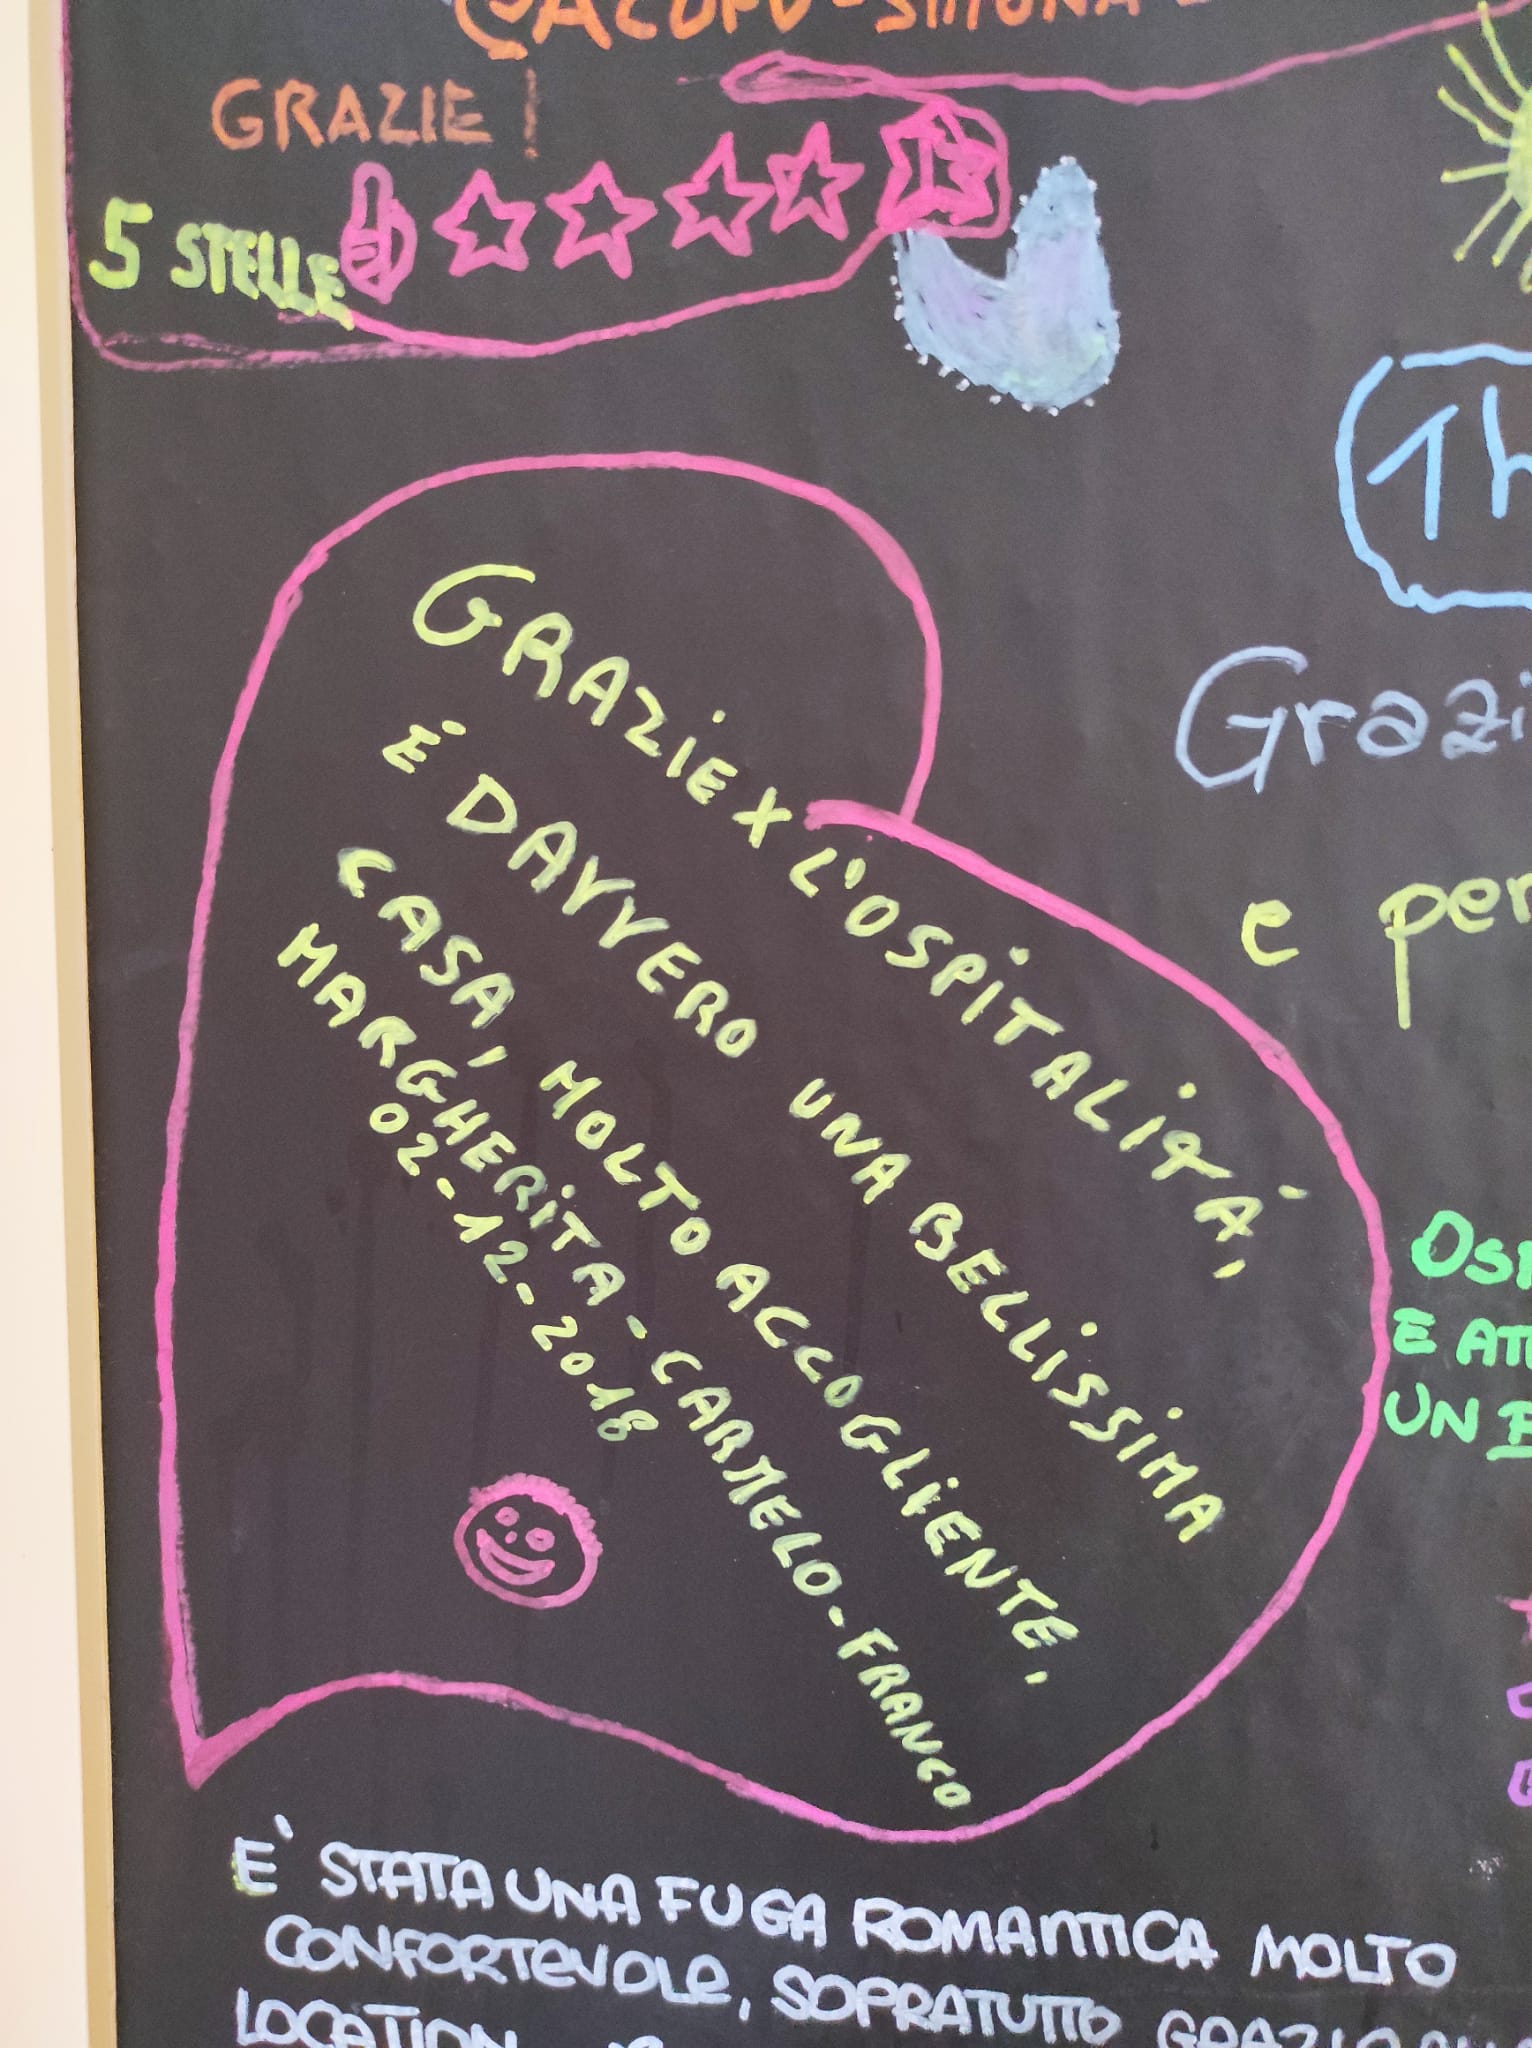 GRAZIE!
5 STELLE
Grazi
e per
GRAZIE X L'OSPITALITÀ,
È DAVVERO UNA BELLISSIMA
CASA, MOLTO ACCOGLIENTE,
MARGHERITA-CARMELO-FRANCO
02-12-2018
E AT
UN
E' STATA UNA FUGA ROMANTICA MOLTO
CONFORTEVOLE, SOPRATUTTO
LOCATION